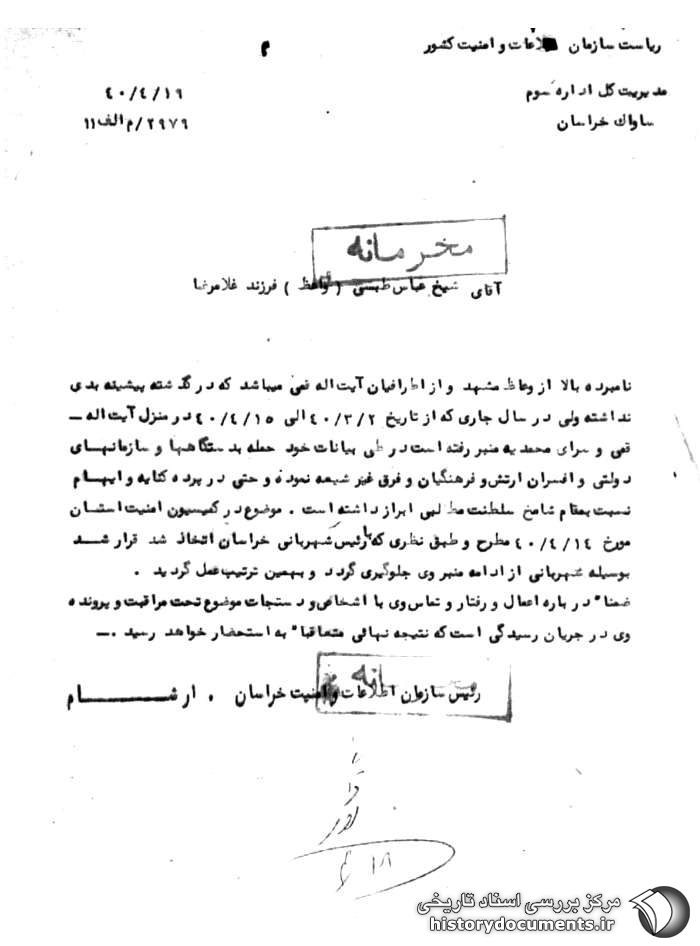 ریاست سازمان اطلاعات و امنیت کشور
م
مدیریت کل اداره سوم
۴۰/۴/۱۹
ساواک خراسان
۲۹۷۹/م الف ۱۱
محرمانه
آقای شیخ عباس طبسی (واعظ) فرزند غلامرضا
نامبرده بالا از وعاظ مشهد و از اطرافیان آیت اله قمی میباشد که در گذشته پیشینه بدی
نداشته ولی در سال جاری که از تاریخ ۴۰/۳/۲ الی ۴۰/۴/۱۵ در منزل آیت اله ـ
قمی و سرای محمدیه منبر رفته است در طی بیانات خود حمله بدستگاهها و سازمانهای
دولتی و افسران ارتش و فرهنگیان و فرق غیر شیعه نموده و حتی در پرده کنایه و ابهام
نسبت بمقام شامخ سلطنت مطالبی ابراز داشته است . موضوع در کمیسیون امنیت استان
مورخ ۴۰/۴/۱۴ مطرح و طبق نظری که با رئیس شهربانی خراسان اتخاذ شد قرار شد
بوسیله شهربانی از ادامه منبر وی جلوگیری گردد و بهمین ترتیب عمل گردید .
ضمنا" در باره اعمال و رفتار و تماس وی با اشخاص و دستجات موضوع تحت مراقبت و پرونده
وی در جریان رسیدگی است که نتیجه نهائی متعاقبا" به استحضار خواهد رسید .ـ
رئیس سازمان اطلاعات و امنیت خراسان . ارشـــــام
مرکز بررسی اسناد تاریخی
historydocuments.ir